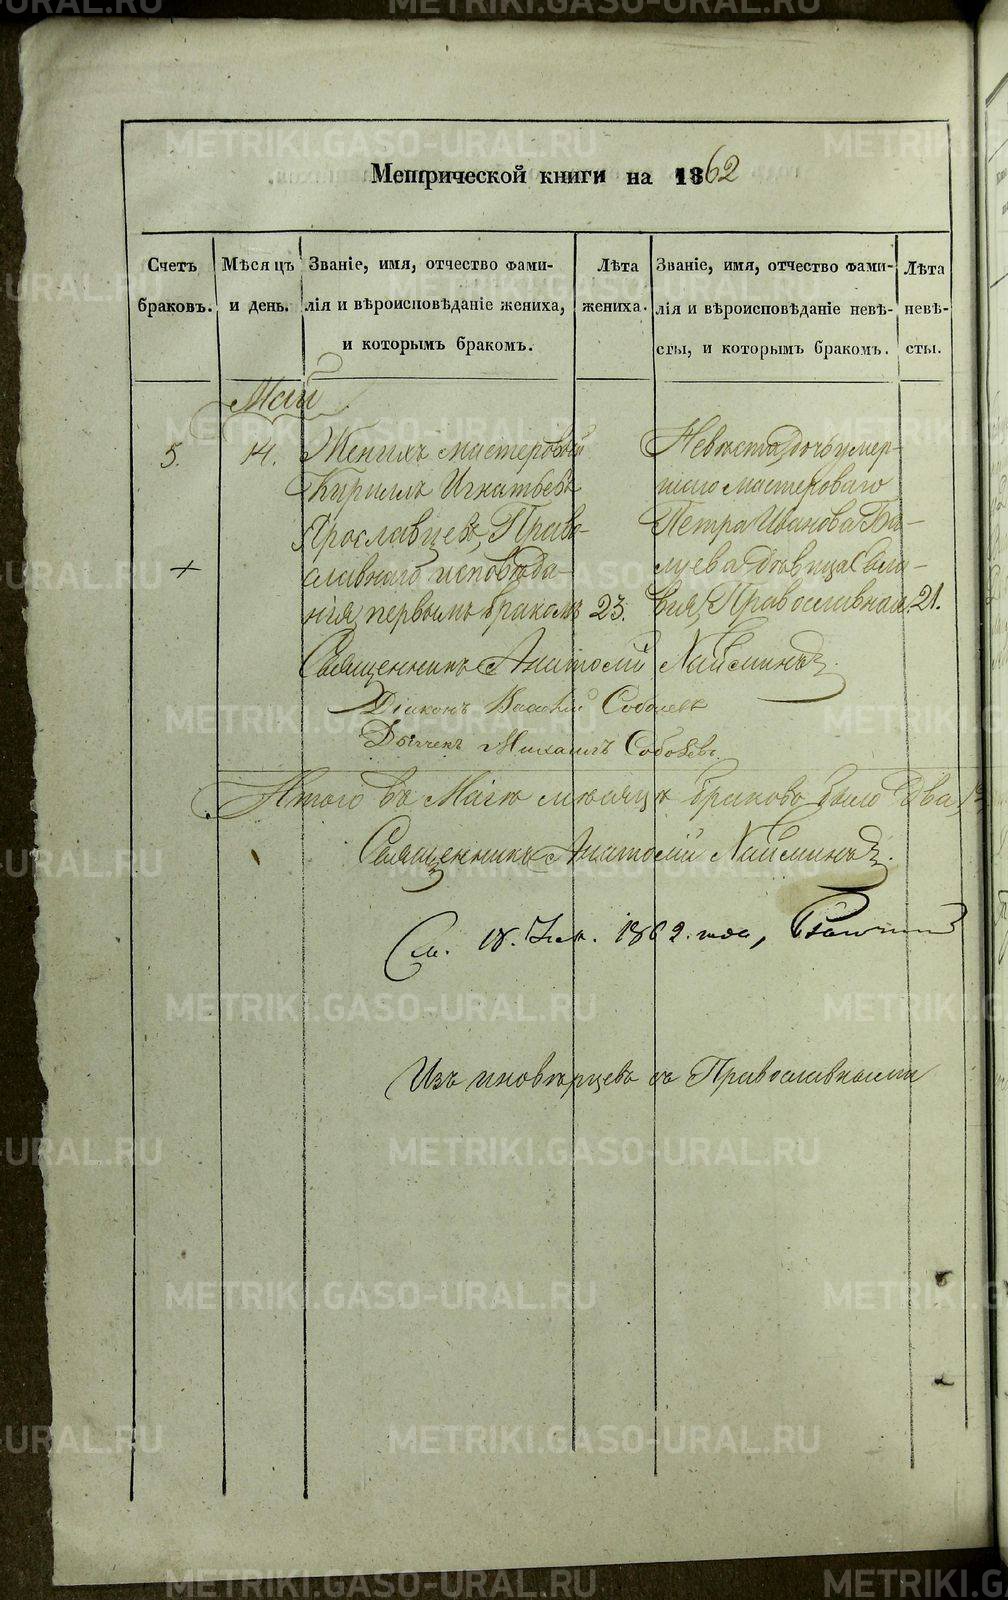 Метрической книги на 1862
Счетъ браковъ.
Мѣсяцъ и день.
Званіе, имя, отчество фами-
лія и вѣроисповѣданіе жениха,
и которымъ бракомъ.
Лѣта жениха.
Званіе, имя, отчество фами-
лія и вѣроисповѣданіе невѣ-
сты, и которымъ бракомъ.
Лѣта невѣ-
сты.
Май
5.
14.
Женихъ мастеровый
Кириллъ Игнатьевъ
Ярославцевъ, Право-
славнаго исповѣда-
нія, первымъ бракомъ
23.
Невѣста, дочь умер-
шаго мастероваго
Петра Иванова
дѣвица
Православная.
21.
Священникъ Анатолій
Діаконъ Василій Соболевъ
Дьячекъ Михаилъ
Итого въ Маіѣ мѣсяцѣ браковъ было два,
Священникъ Анатолій
См. 18. 1862. года,
Изъ иновѣрцевъ съ Православными
METRIKI.GASO-URAL.RU